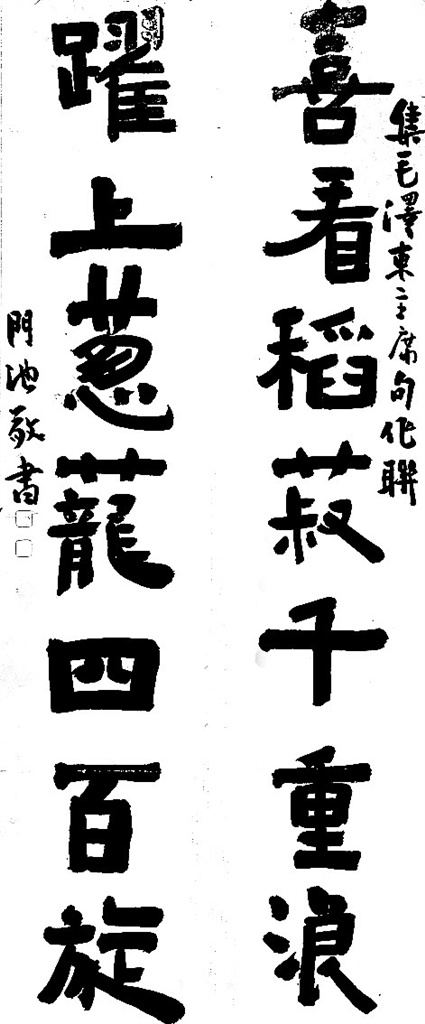 集毛澤東主席句作聯
喜看稻菽千重浪
躍上葱蘢四百旋
門池敬書